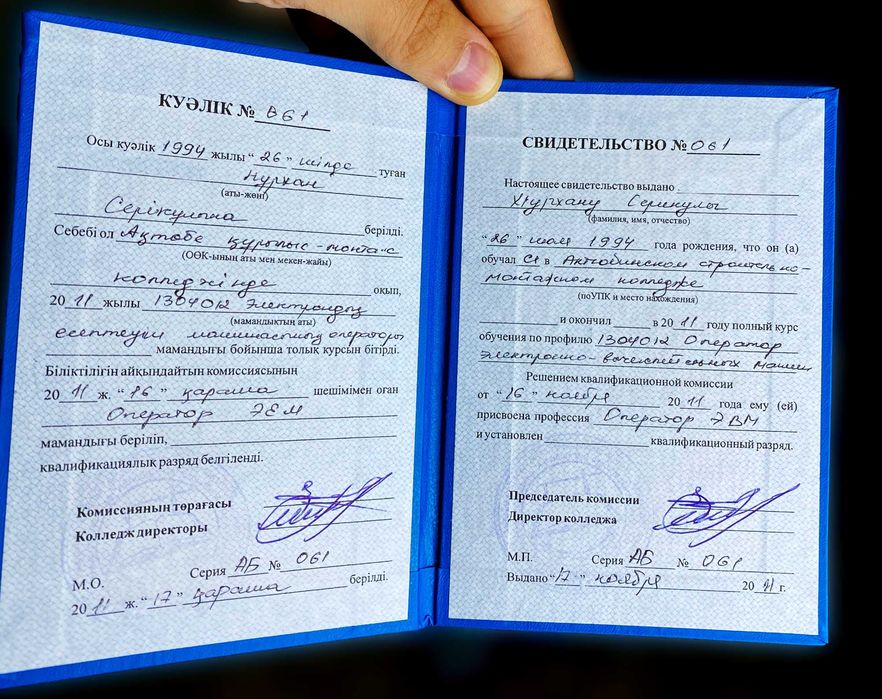 КУӘЛІК № 061
Осы куәлік 1994 жылы "26" шілде туған
Нұрхан
(аты-жөні)
Серікұлына берілді.
Себебі ол Ақтөбе құрылыс-монтаж
(ОӨК-ының аты мен мекен-жайы)
колледжінде оқып,
20 11 жылы 1304012 Электрондық
(мамандықтың аты)
есептеуіш машинасының операторы
мамандығы бойынша толық курсын бітірді.
Біліктілігін айқындайтын комиссиясының
20 11 ж. "16" қараша шешімімен оған
Оператор ЭЕМ
мамандығы беріліп,
квалификациялық разряд белгіленді.
Комиссияның төрағасы
Колледж директоры
М.О. Серия АБ № 061
20 11 ж. "17" қараша берілді.
СВИДЕТЕЛЬСТВО № 061
Настоящее свидетельство выдано
Нурхану Серикулы
(фамилия, имя, отчество)
"26" июля 1994 года рождения, что он (а)
обучался в Актюбинском строительно-
монтажном колледже
(поУПК и место нахождения)
и окончил в 20 11 году полный курс
обучения по профилю 1304012 Оператор
электронно-вычеслительных машин
Решением квалификационной комиссии
от "16" ноября 20 11 года ему (ей)
присвоена профессия Оператор ЭВМ
и установлен квалификационный разряд.
Председатель комиссии
Директор колледжа
М.П. Серия АБ № 061
Выдано "17" ноября 20 11 г.